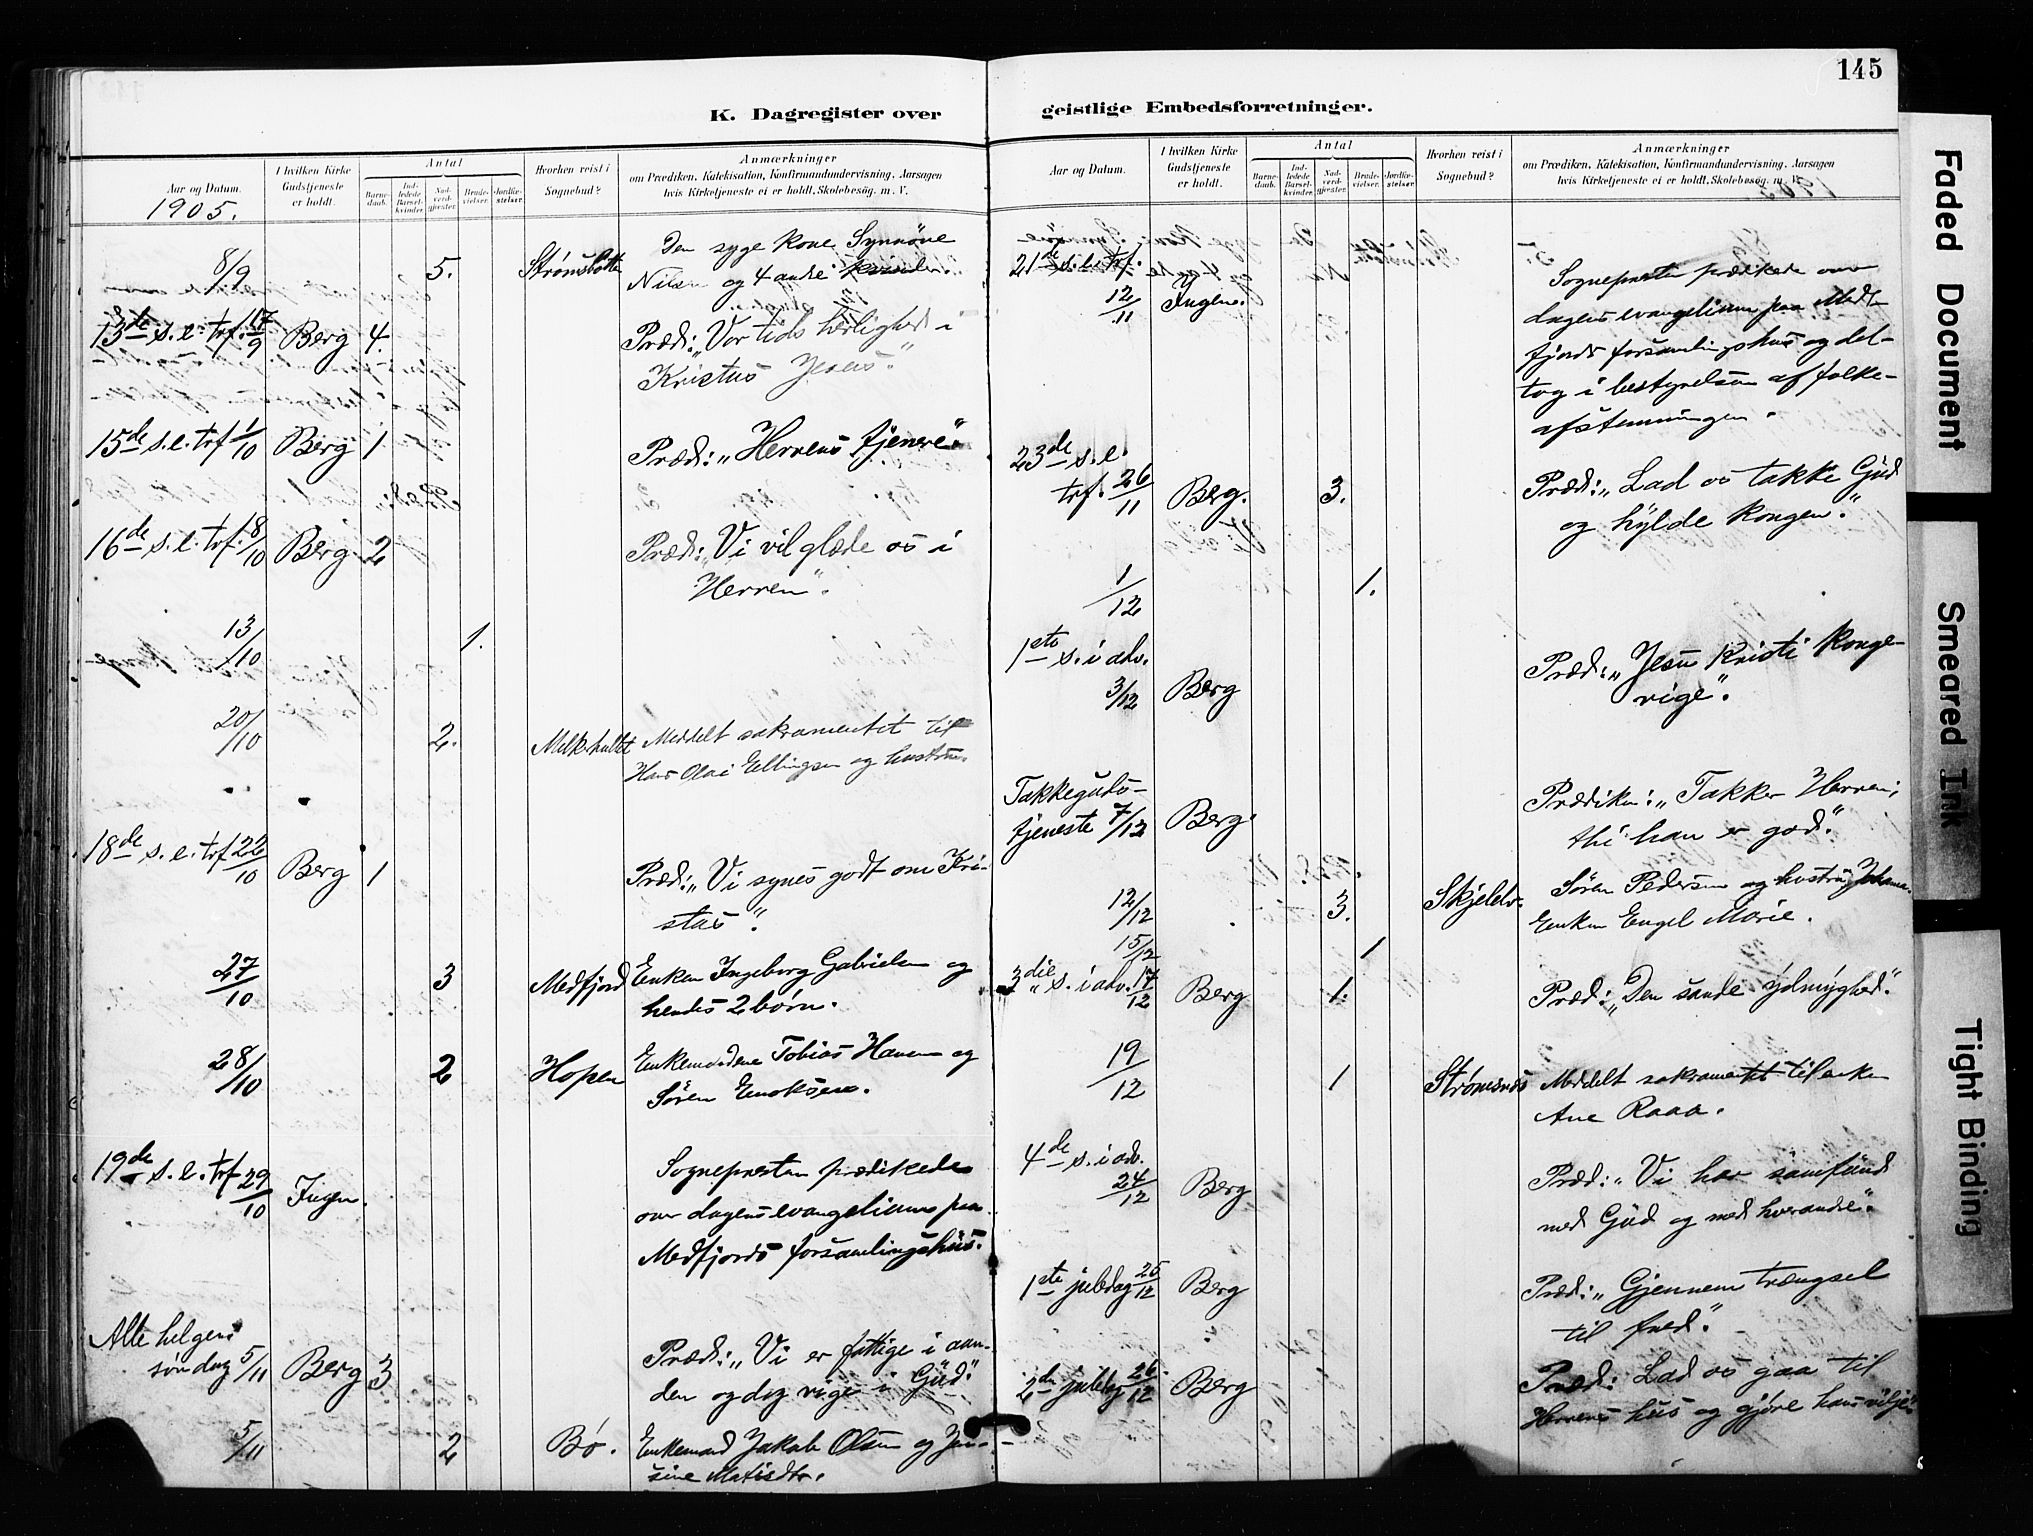 145
K. Dagregister over
geistlige Embedsforretninger.
Aar og Datum.
1905.
I hvilken Kirke
Gudstjeneste
er holdt.
Antal
Barne-
daab.
Ind-
ledede
Barsel-
kvinder.
Nad-
verd-
gjester.
Brude-
vielser.
Jordfæ-
stelser.
Hvorhen reist i
Sognebud?
Anmærkninger
om Prædiken, Katekisation, Konfirmandundervisning, Aarsagen
hvis Kirketjeneste ei er holdt, Skolebesøg. m. V.
8/9 5. Strømsbotn Den syge kone Synnöve
Nilsen og 4 andre
13de s. e. trf. 17/9 Berg 4. Præd: „Vor tids herlighed i
Kristus Jesus.“
15de s. e. trf 1/10 Berg 1 Præd: „Herrens tjenere“.
16de s. e. trf. 8/10 Berg 2 Præd: „Vi vil glæde os i
Herren“.
13/10 1.
20/10 2. Meddelt sakramentet til
Hans Olai Ellingsen og hustru.
18de s. e. trf 22/10 Berg 1 Præd: „Vi synes godt om Kri-
stus“.
27/10 3 Medfjord Enken Ingeborg Gabrielsen og
hendes 2 børn.
28/10 2 Hopen Enkemændene Tobias Hansen og
Sören Enoksen.
19de s. e. trf 29/10 Ingen. Sognepresten prædikede
over dagens evangelium paa
Medfjords forsamlingshus.
Alle helgens
søndag 5/11 Berg 3 Præd: „Vi er fattige i aan-
den og dog rige i Gud.“
5/11 2 Bø. Enkemand Jakob Olsen og Jen-
sine Matisdtr.
Aar og Datum.
I hvilken Kirke
Gudstjeneste
er holdt.
Antal
Barne-
daab.
Ind-
ledede
Barsel-
kvinder.
Nad-
verd-
gjester.
Brude-
vielser.
Jordfæ-
stelser.
Hvorhen reist i
Sognebud?
Anmærkninger
om Prædiken, Katekisation, Konfirmandundervisning, Aarsagen
hvis Kirketjeneste ei er holdt, Skolebesøg. m. V.
21de s. e. trf.
12/11 Ingen. Sognepresten prædikede over
dagens evangelium paa Med-
fjords forsamlingshus og del-
tog i bestyrelsen af folke-
afstemningen.
23de s. e.
trf. 26/11 Berg. 3. Præd: „Lad os takke Gud
og hylde kongen.“
1/12 1.
1ste s. i adv.
3/12 Berg Præd: „Jesu Kristi konge-
rige“.
Takkeguds-
tjeneste 7/12 Berg. Prædiken: „Takker Herren;
thi han er god“.
12/12 3. Skjelelv. Sören Pedersen og hustru
Enken Engel Marie.
15/12 1
3die s. i adv. 17/12 Berg 1. Præd: „Den sande ydmyghed.“
19/12 1 Strømsnes Meddelt sakramentet til enke
Ane Raaa.
4de s. i adv.
24/12 Berg Præd: „Vi har samfund
med Gud og med hverandre“.
1ste juledag 25/12 Berg Præd: „Gjennem trængsel
til fred“.
2den juledag 26/12 Berg Præd: Lad os gaa til
Herrens hus og gjøre hans vilje“
Faded Document
Smeared Ink
Tight Binding